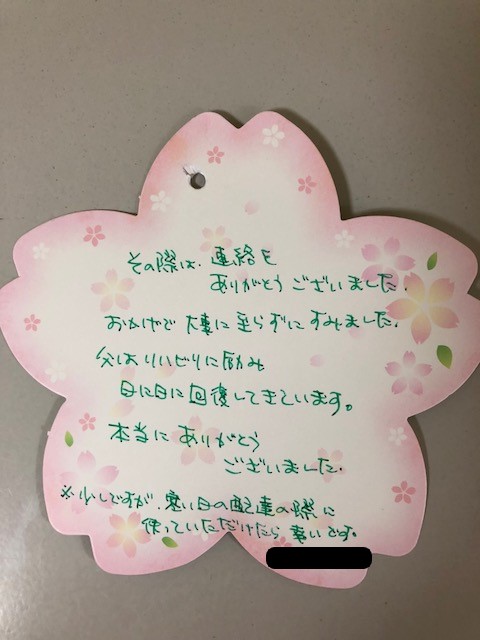 その際は、連絡を
ありがとうございました。
おかげで大事に至らずにすみました。
父はリハビリに励み
日に日に回復してきています。
本当にありがとう
ございました。
※少しですが、寒い日の配達の際に
使っていただけたら幸いです。